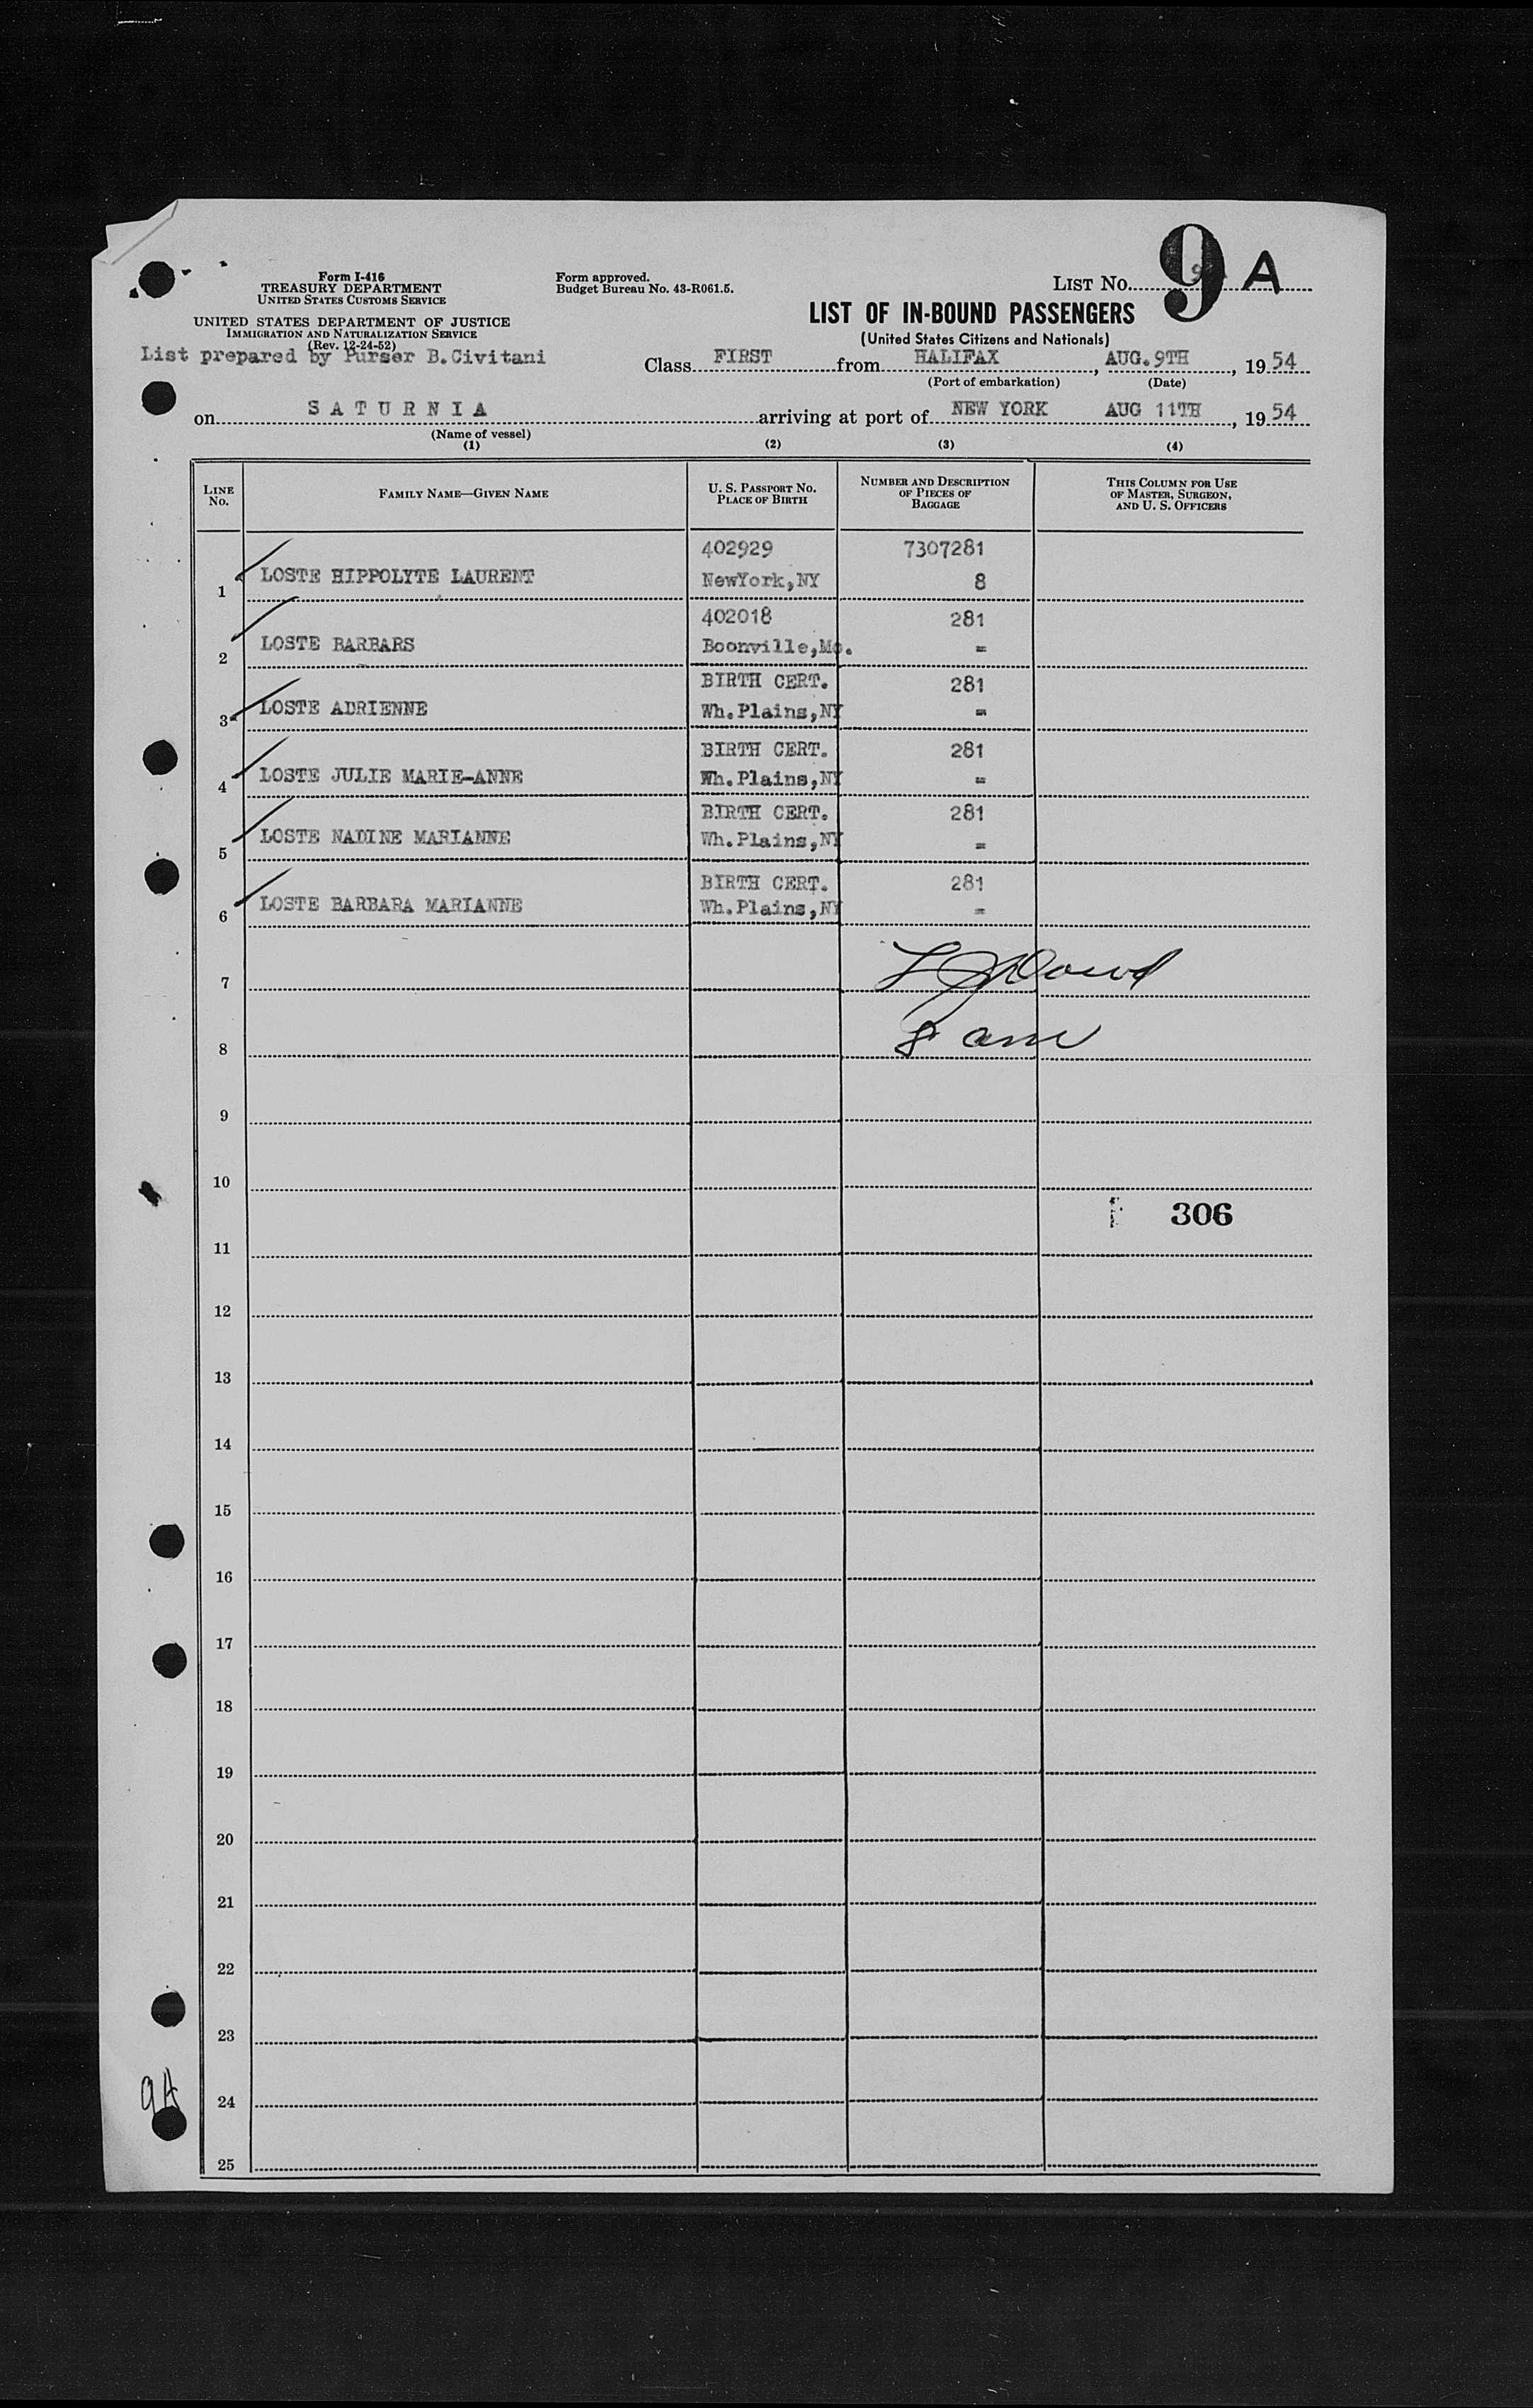 9 A
Form I-416
TREASURY DEPARTMENT
UNITED STATES CUSTOMS SERVICE
Form approved.
Budget Bureau No. 43-R061.5.
LIST NO.
UNITED STATES DEPARTMENT OF JUSTICE
IMMIGRATION AND NATURALIZATION SERVICE
(Rev. 12-24-52)
LIST OF IN-BOUND PASSENGERS
(United States Citizens and Nationals)
List prepared by Purser B.Civitani
Class FIRST from HALIFAX, AUG.9TH, 1954
(Port of embarkation) (Date)
on SATURNIA arriving at port of NEW YORK AUG 11TH, 1954
(Name of vessel)
(1) (2) (3) (4)
LINE NO. FAMILY NAME—GIVEN NAME U. S. PASSPORT NO. PLACE OF BIRTH NUMBER AND DESCRIPTION OF PIECES OF BAGGAGE THIS COLUMN FOR USE OF MASTER, SURGEON, AND U. S. OFFICERS
402929 7307281
1 LOSTE HIPPOLYTE LAURENT NewYork,NY 8
402018 281
2 LOSTE BARBARS Boonville,Mo. =
BIRTH CERT. 281
3 LOSTE ADRIENNE Wh.Plains,NY =
BIRTH CERT. 281
4 LOSTE JULIE MARIE-ANNE Wh.Plains,NY =
BIRTH CERT. 281
5 LOSTE NADINE MARIANNE Wh.Plains,NY =
BIRTH CERT. 281
6 LOSTE BARBARA MARIANNE Wh.Plains,NY =
7
8
9
10
306
11
12
13
14
15
16
17
18
19
20
21
22
23
9A
24
25